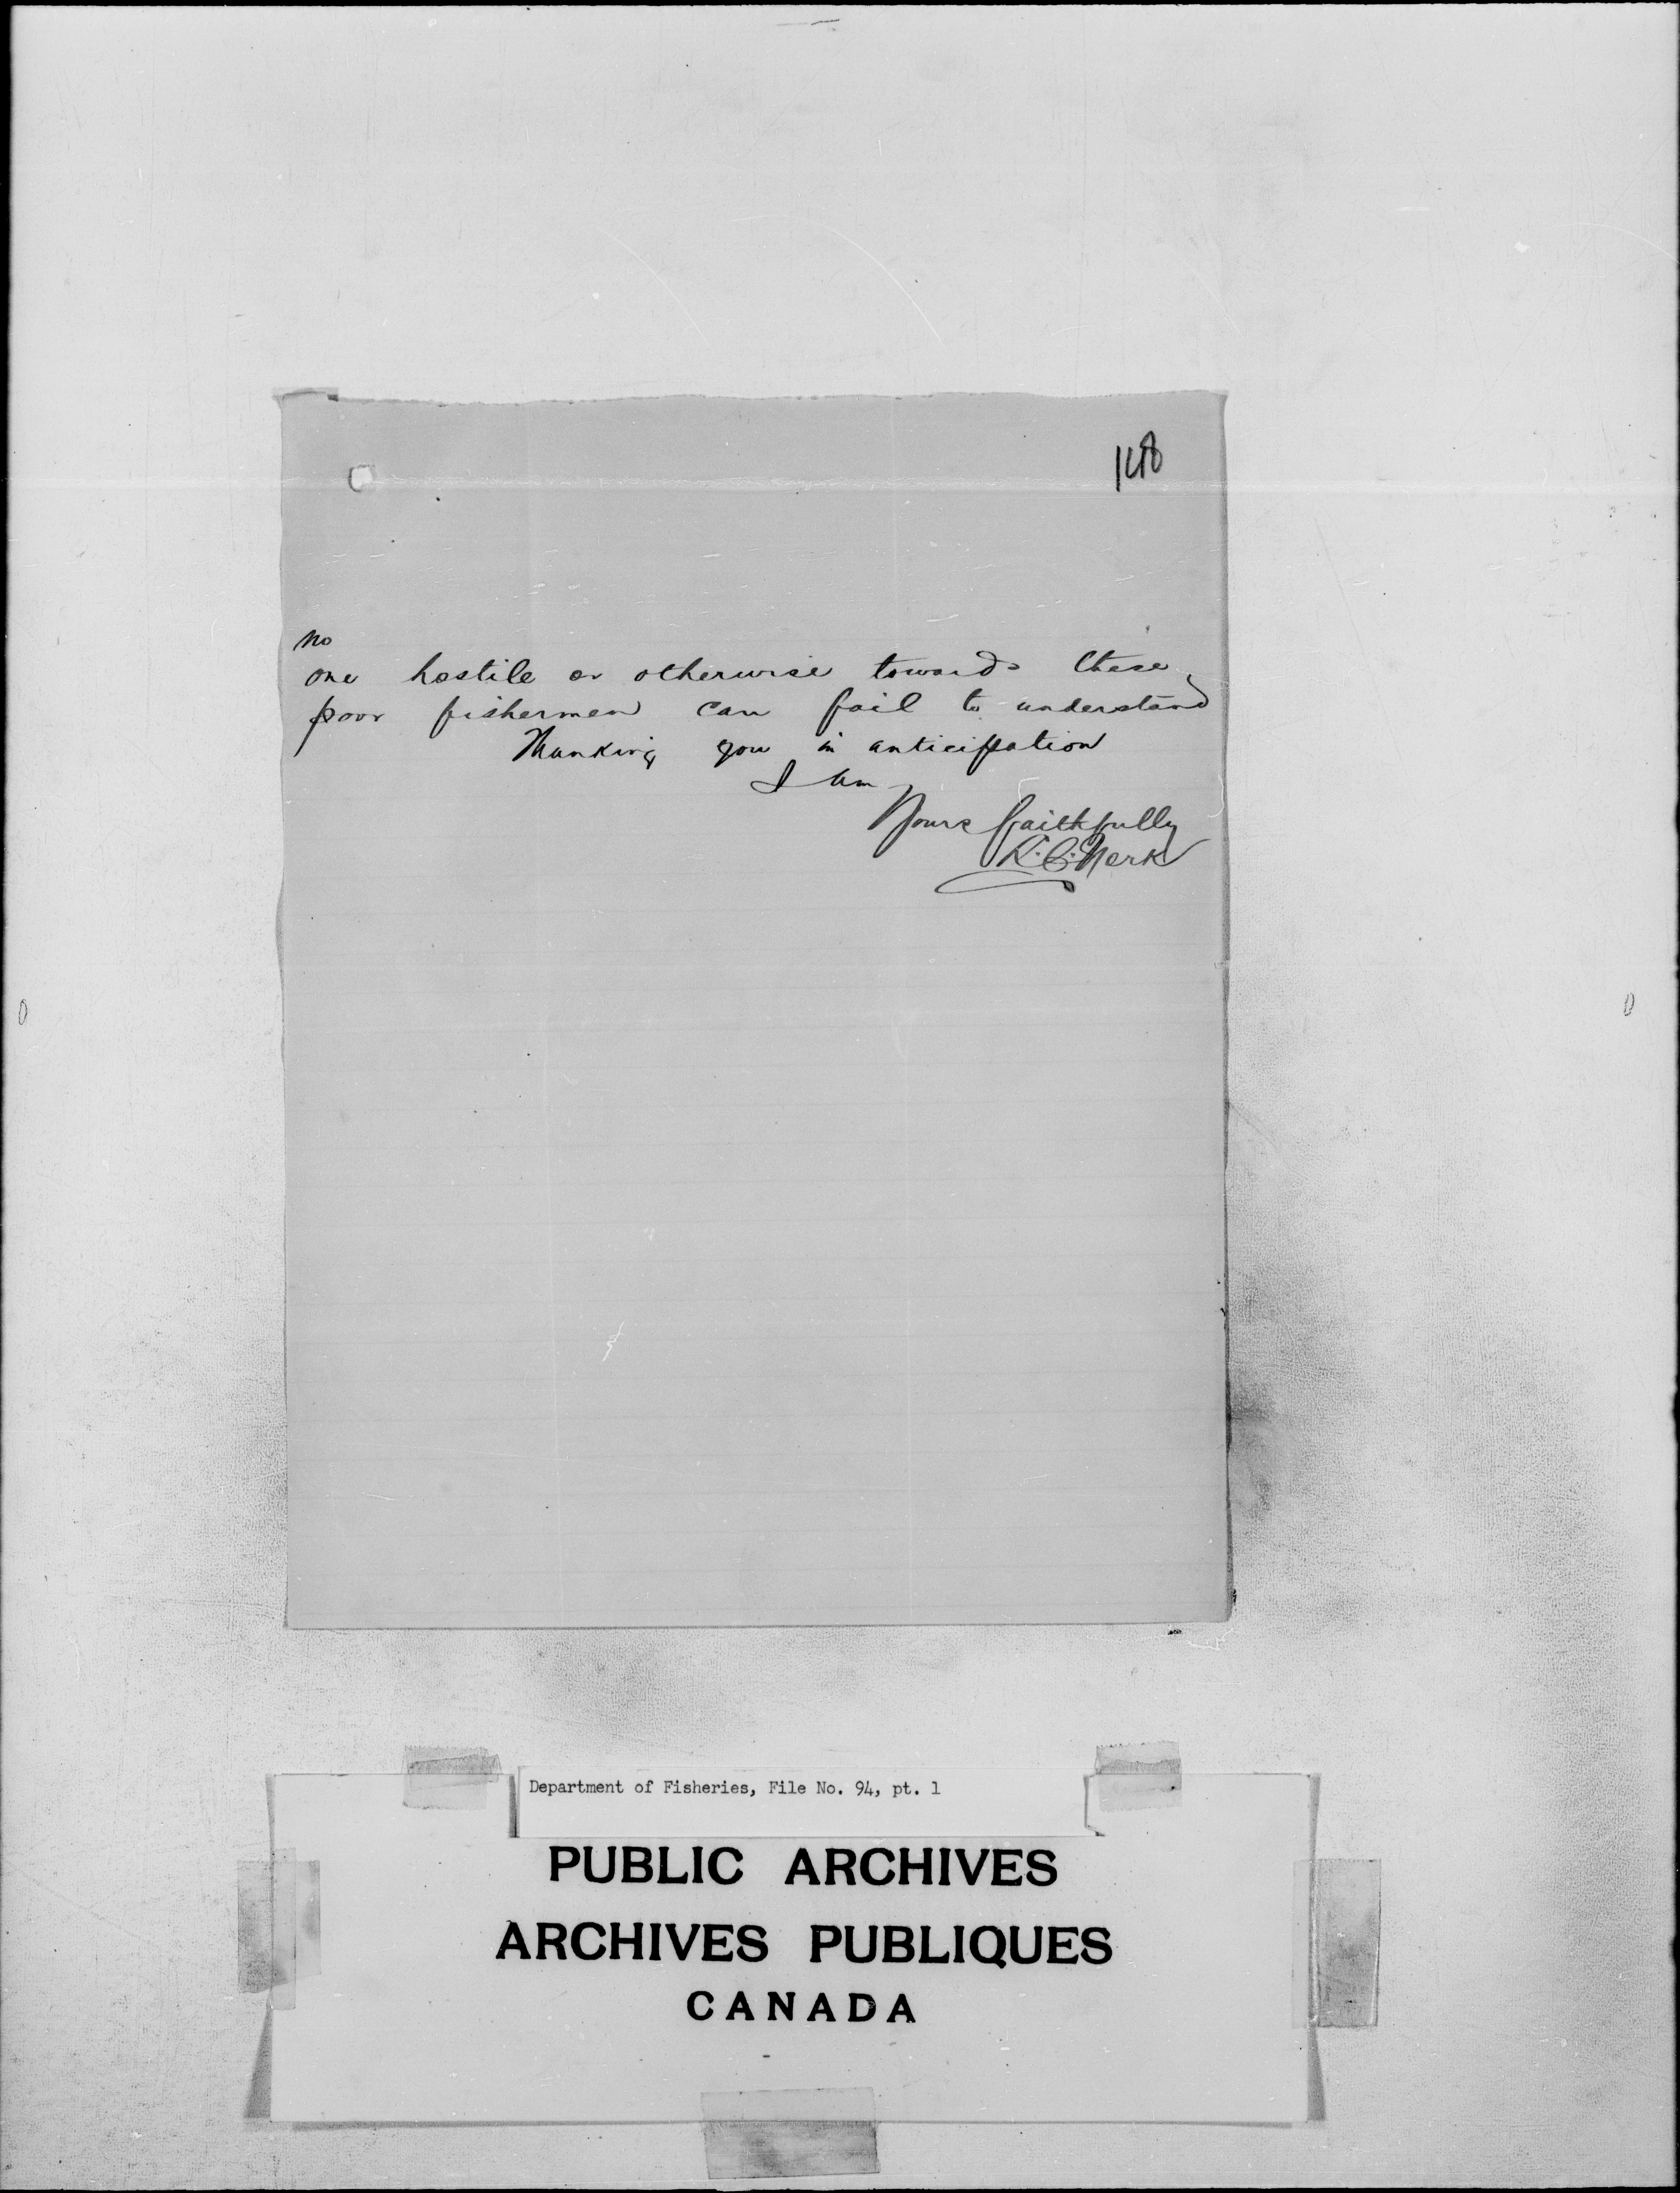 no
one hostile or otherwise towards these
poor fishermen can fail to understand
Thanking you in anticipation
I am
Yours faithfully
Department of Fisheries, File No. 94, pt. 1
PUBLIC ARCHIVES
ARCHIVES PUBLIQUES
CANADA